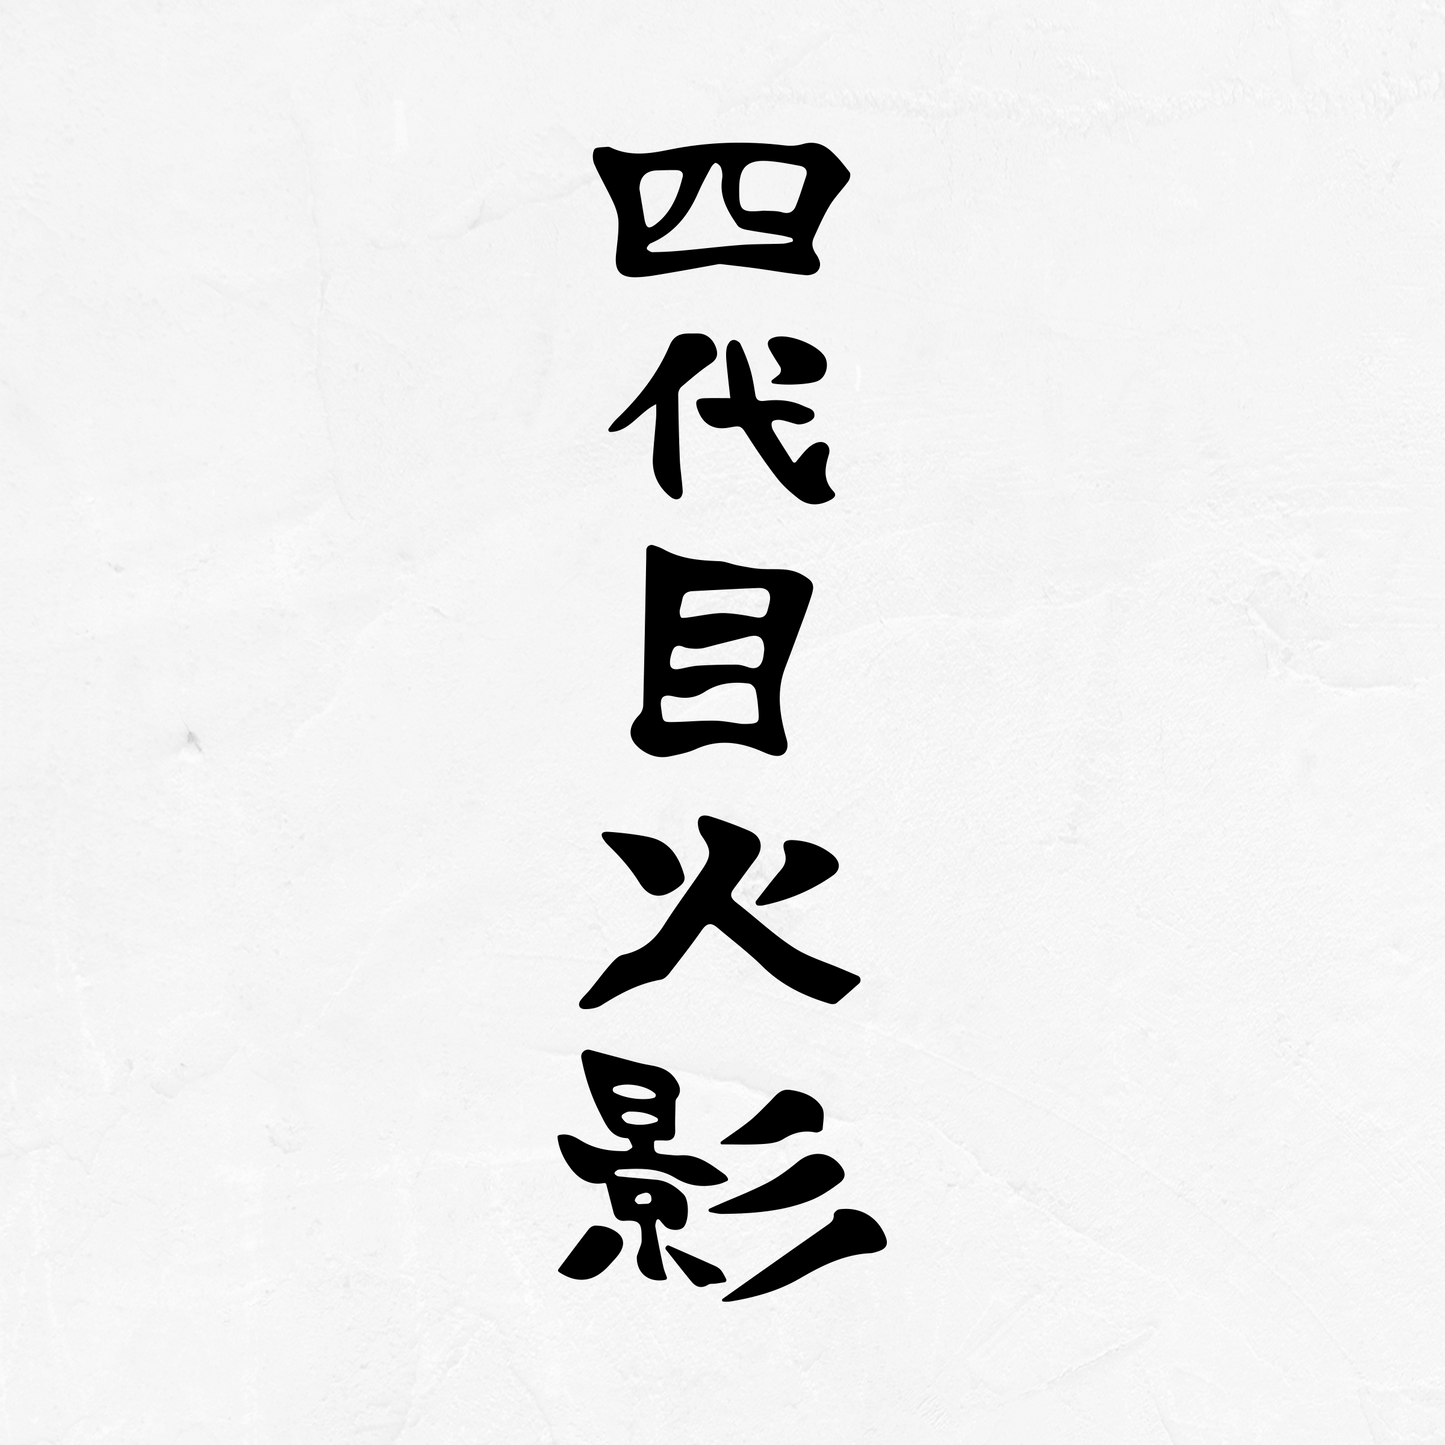 四代目火影